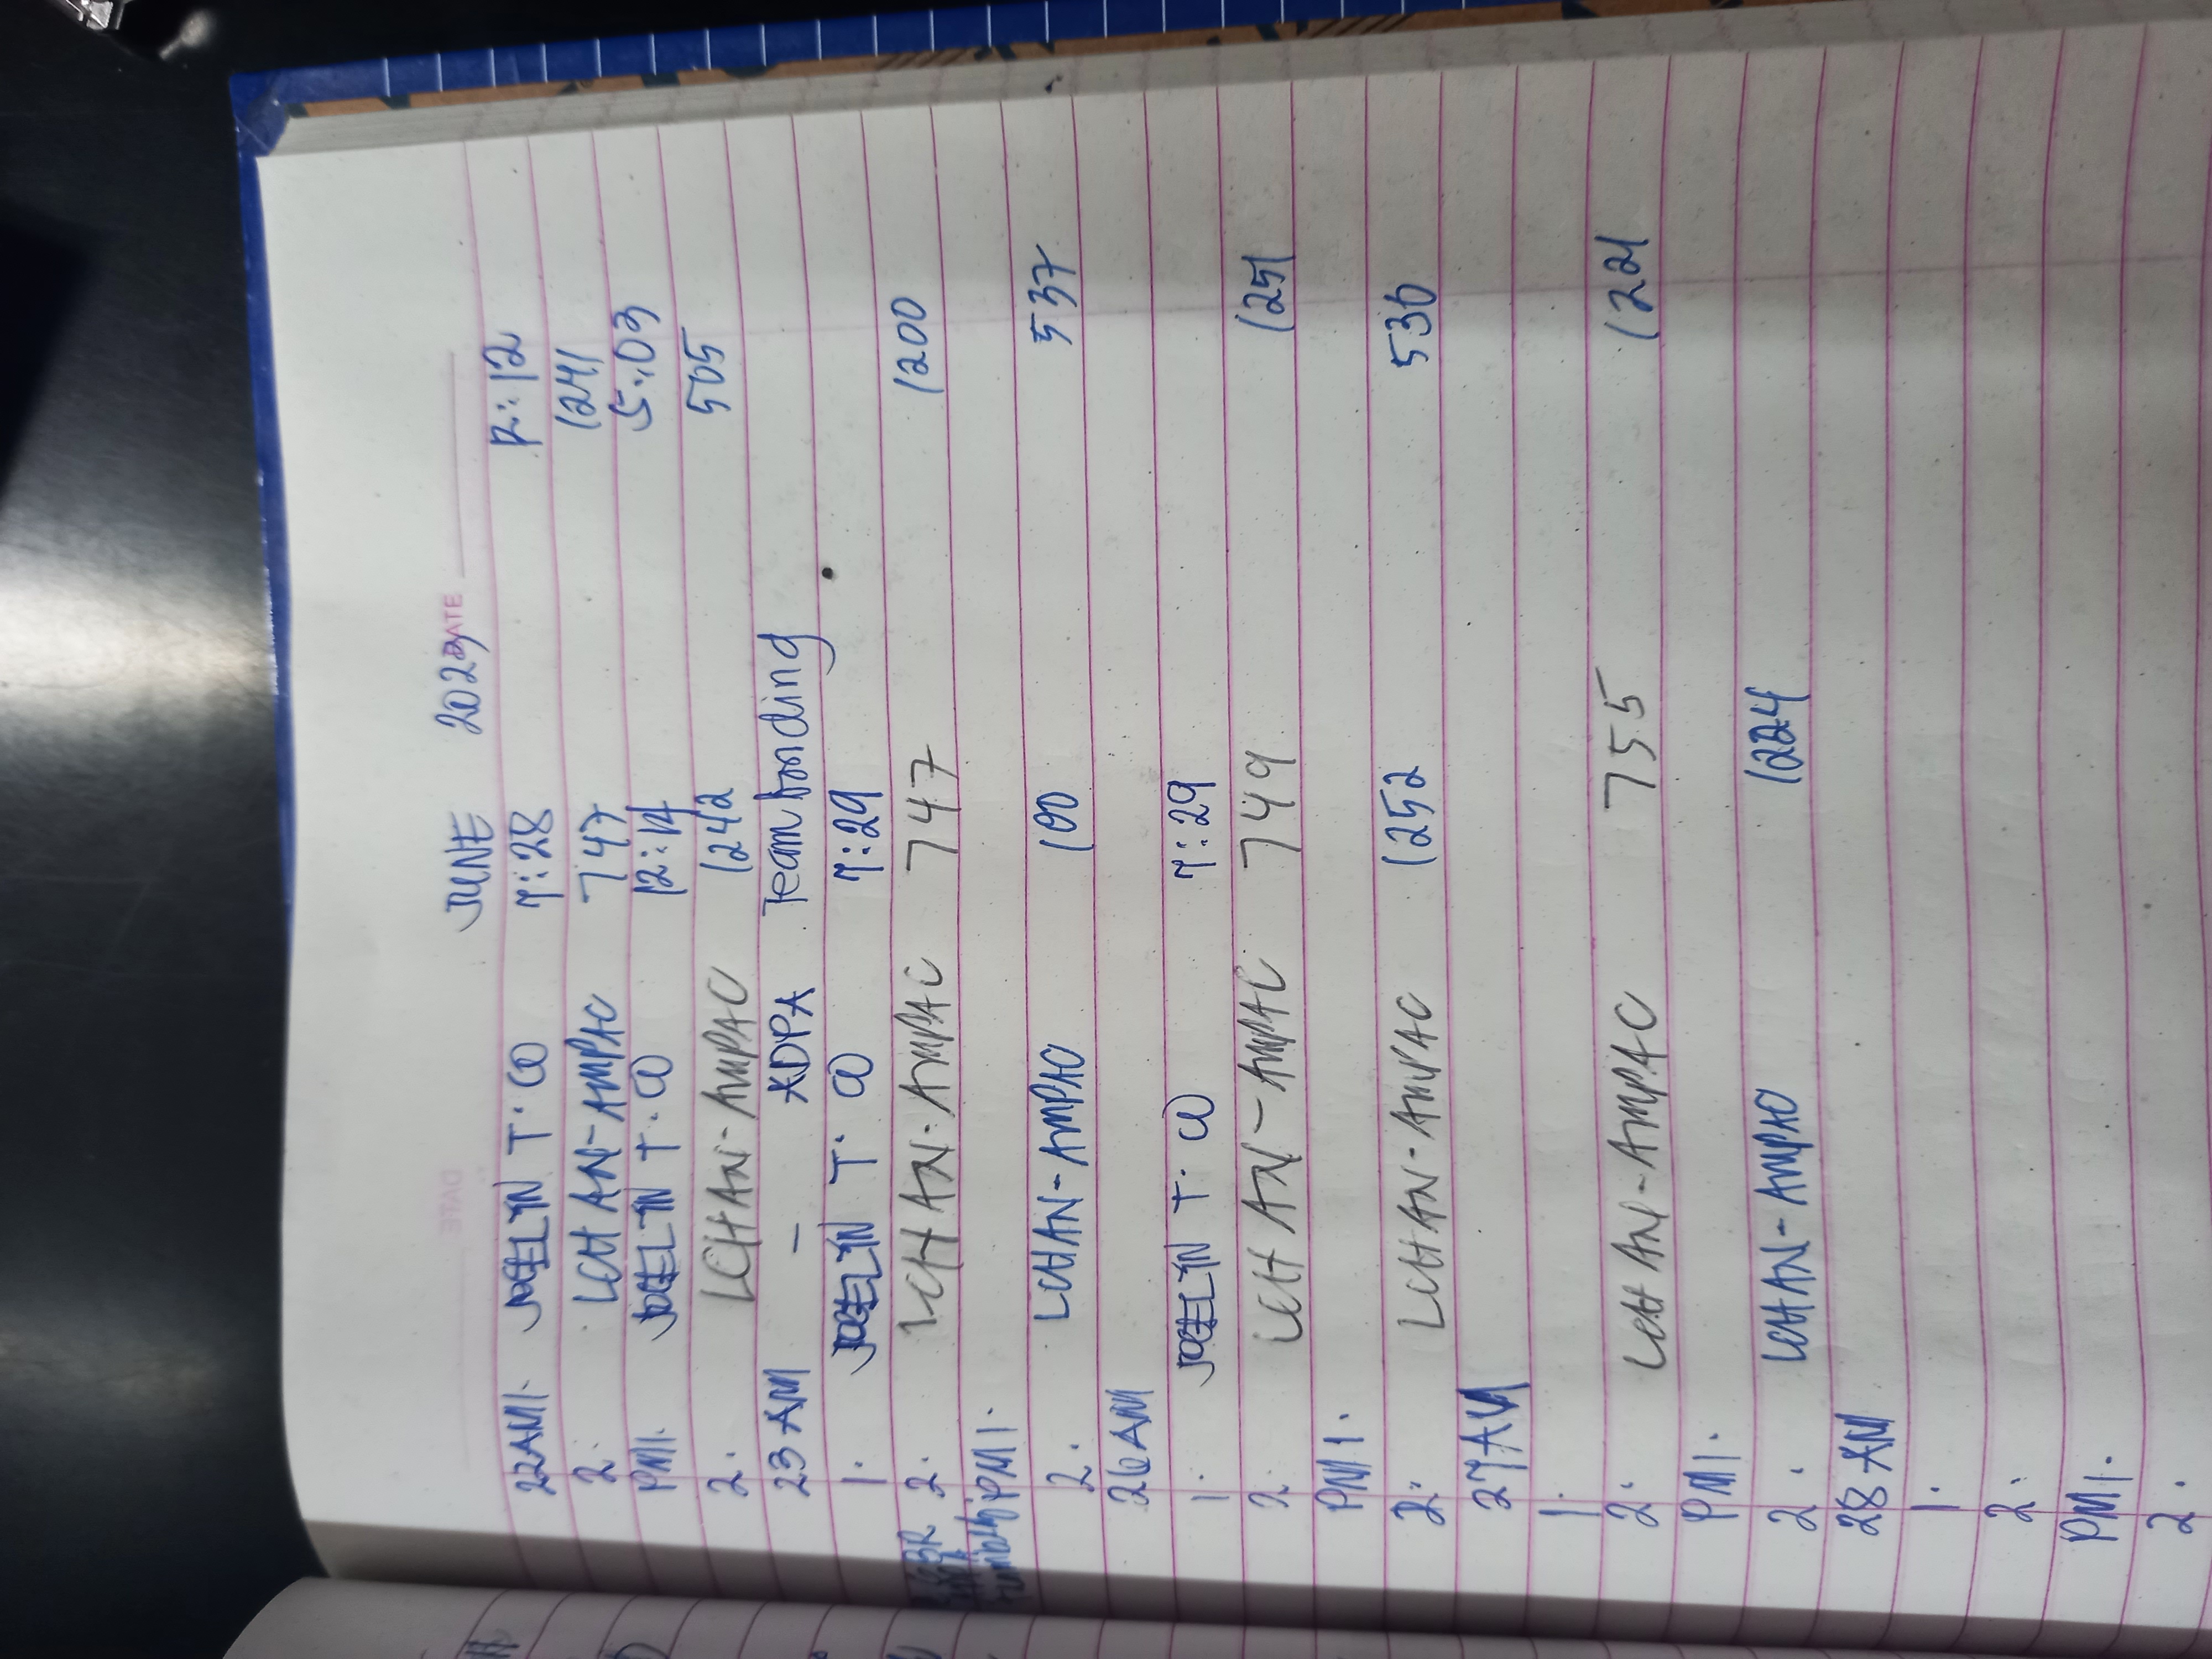 JUNE 2023 DATE
22AM1. JOCELYN T. CO 7:28 12:12
2. LCHAN-AMPAC 747 1241
PM1. JOCELYN T. CO 12:14 5:03
2. LCHAN-AMPAC 1242 505
23 AM - ADPA Team bonding
1. JOCELYN T. CO 7:29
2. LCHAN-AMPAC 747 1200
PM1.
2. LCHAN-AMPAC 100 537
26 AM
1. JOCELYN T. CO 7:29
2. LCHAN-AMPAC 749 1251
PM 1.
2. LCHAN-AMPAC 1252 536
27 AM
1.
2. LCHAN-AMPAC 755 1221
PM1.
2. LCHAN-AMPAC 1224
28 AM
1.
2.
PM1.
2.